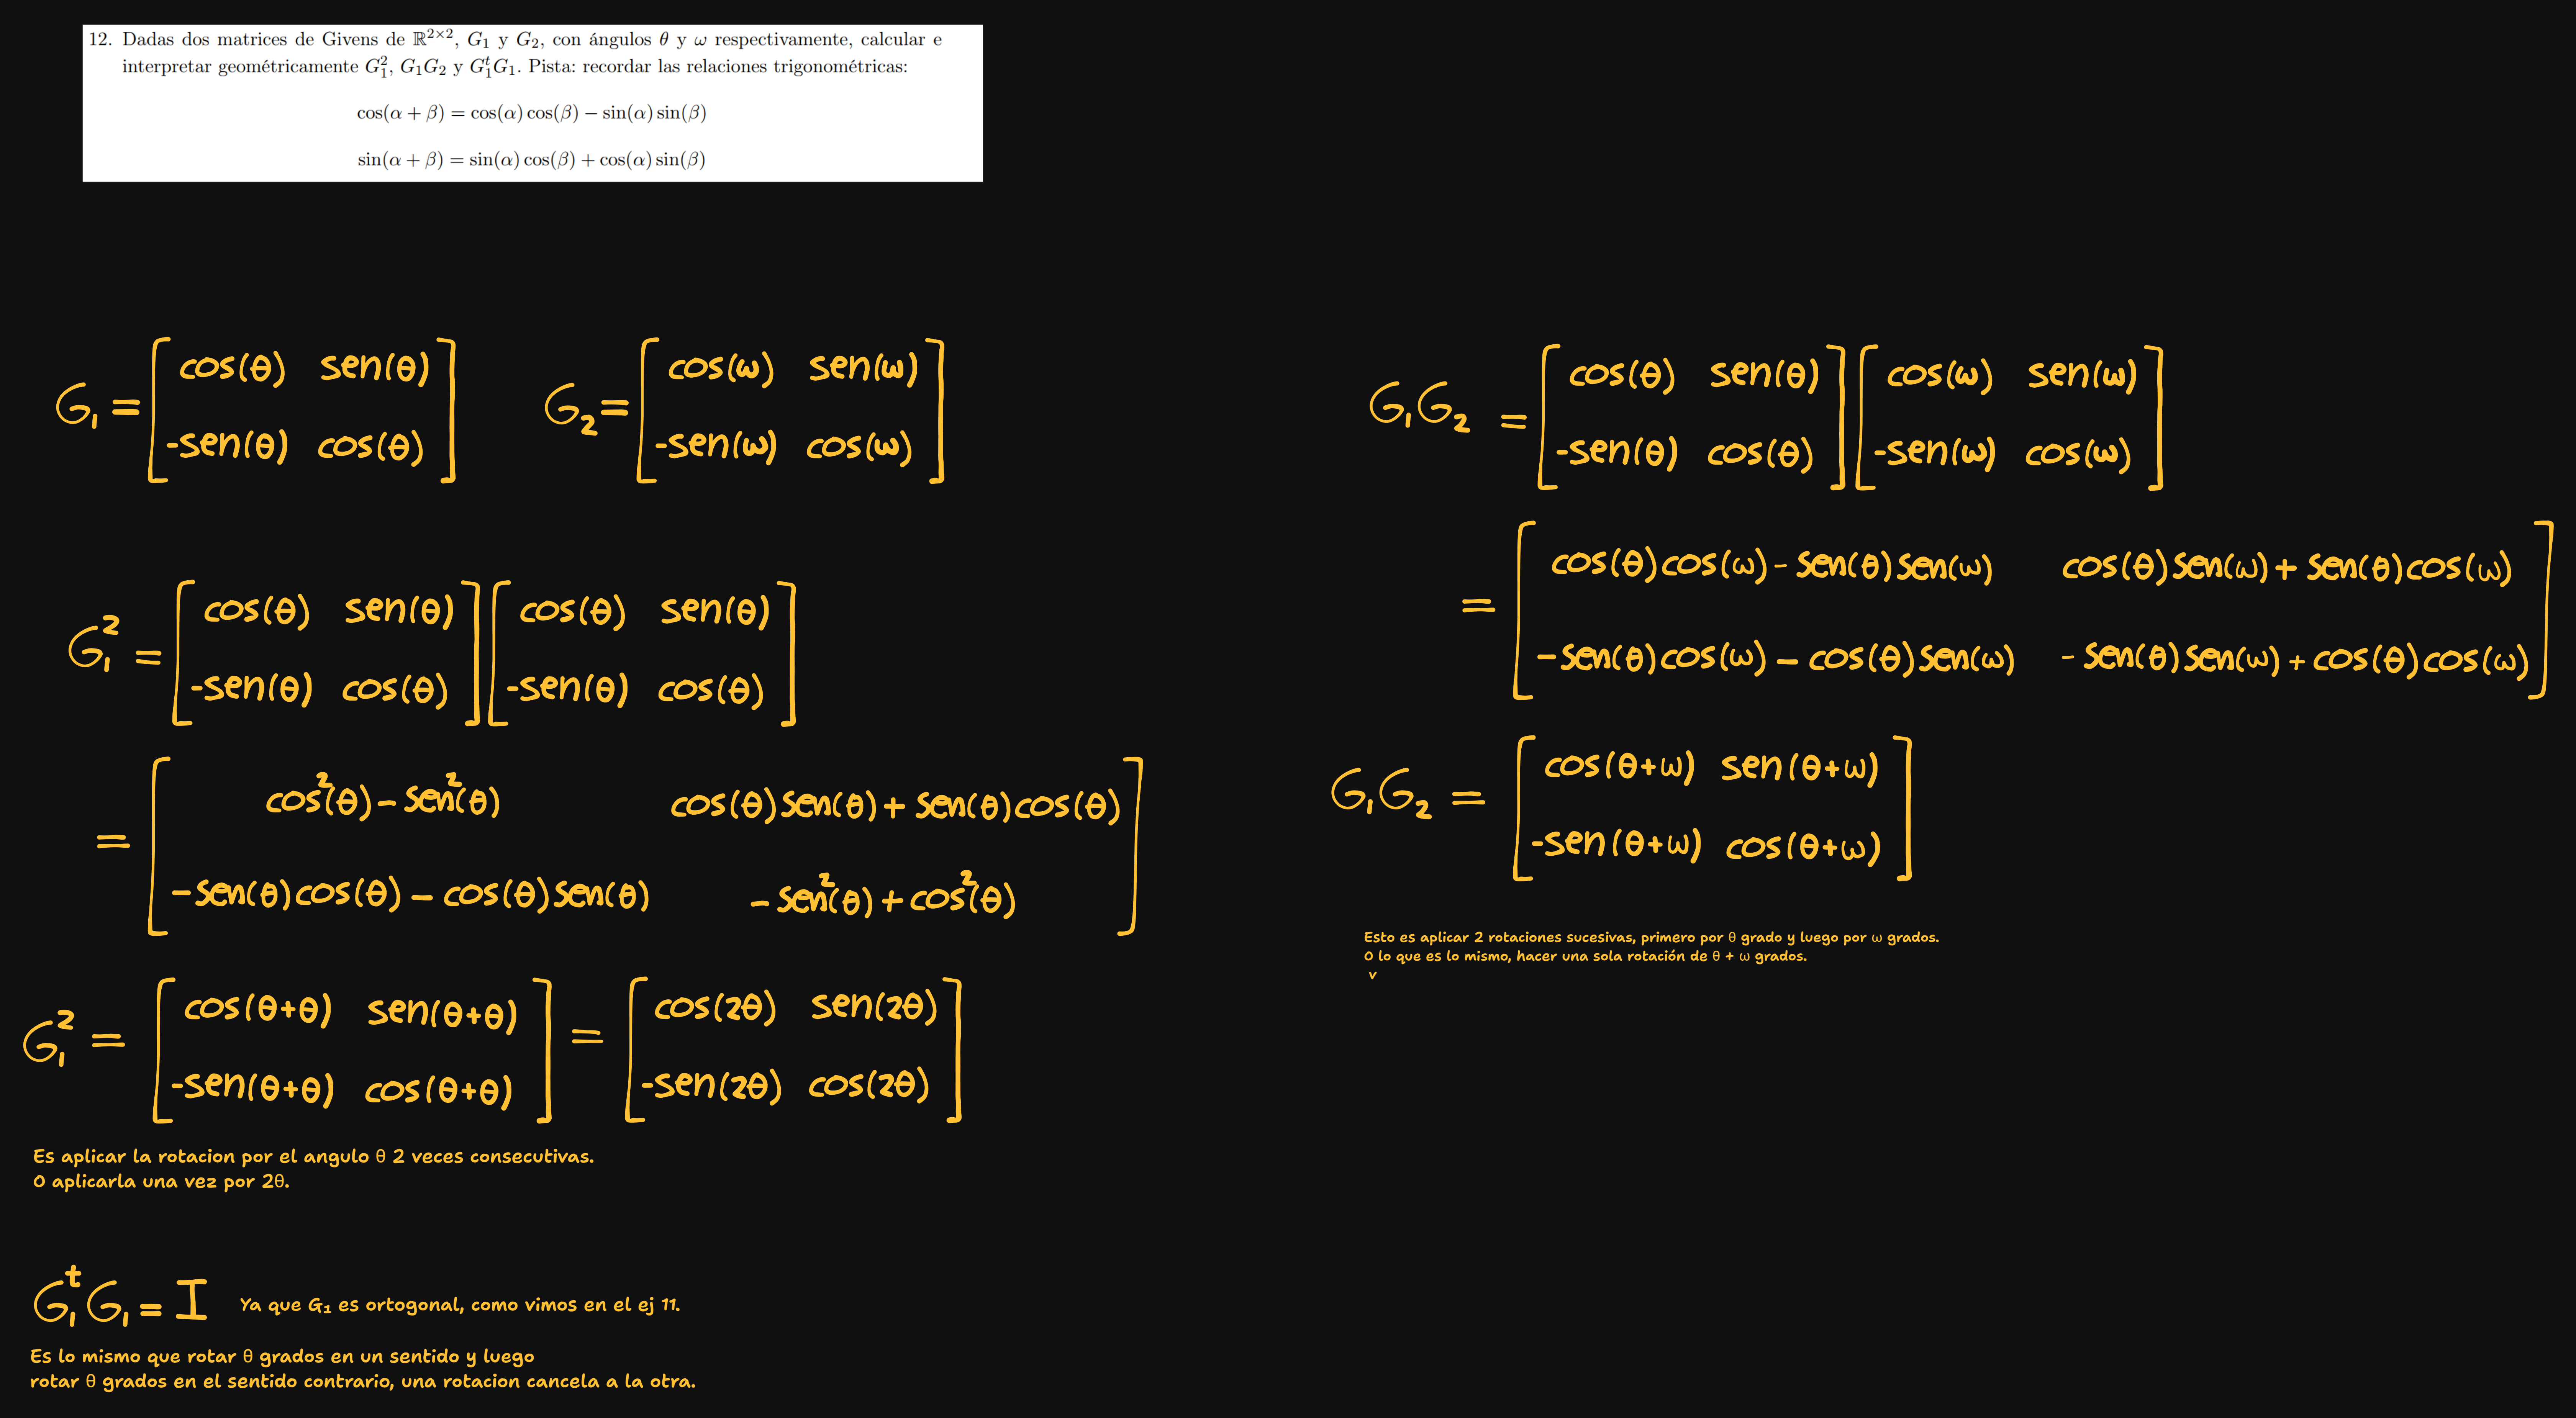 12. Dadas dos matrices de Givens de ℝ²ˣ², G₁ y G₂, con ángulos θ y ω respectivamente, calcular e
interpretar geométricamente G₁², G₁G₂ y G₁ᵗG₁. Pista: recordar las relaciones trigonométricas:
cos(α + β) = cos(α) cos(β) − sin(α) sin(β)
sin(α + β) = sin(α) cos(β) + cos(α) sin(β)
G₁ = [ cos(θ) sen(θ)
-sen(θ) cos(θ) ]
G₂ = [ cos(ω) sen(ω)
-sen(ω) cos(ω) ]
G₁² = [ cos(θ) sen(θ) ] [ cos(θ) sen(θ) ]
[ -sen(θ) cos(θ) ] [ -sen(θ) cos(θ) ]
= [ cos²(θ) - sen²(θ) cos(θ)sen(θ) + sen(θ)cos(θ)
-sen(θ)cos(θ) - cos(θ)sen(θ) -sen²(θ) + cos²(θ) ]
G₁² = [ cos(θ+θ) sen(θ+θ) ] = [ cos(2θ) sen(2θ) ]
[ -sen(θ+θ) cos(θ+θ) ] [ -sen(2θ) cos(2θ) ]
Es aplicar la rotacion por el angulo θ 2 veces consecutivas.
O aplicarla una vez por 2θ.
G₁ᵗG₁ = I Ya que G₁ es ortogonal, como vimos en el ej 11.
Es lo mismo que rotar θ grados en un sentido y luego
rotar θ grados en el sentido contrario, una rotacion cancela a la otra.
G₁G₂ = [ cos(θ) sen(θ) ] [ cos(ω) sen(ω) ]
[ -sen(θ) cos(θ) ] [ -sen(ω) cos(ω) ]
= [ cos(θ)cos(ω) - sen(θ)sen(ω) cos(θ)sen(ω) + sen(θ)cos(ω)
-sen(θ)cos(ω) - cos(θ)sen(ω) -sen(θ)sen(ω) + cos(θ)cos(ω) ]
G₁G₂ = [ cos(θ+ω) sen(θ+ω)
-sen(θ+ω) cos(θ+ω) ]
Esto es aplicar 2 rotaciones sucesivas, primero por θ grado y luego por ω grados.
O lo que es lo mismo, hacer una sola rotación de θ + ω grados.
v